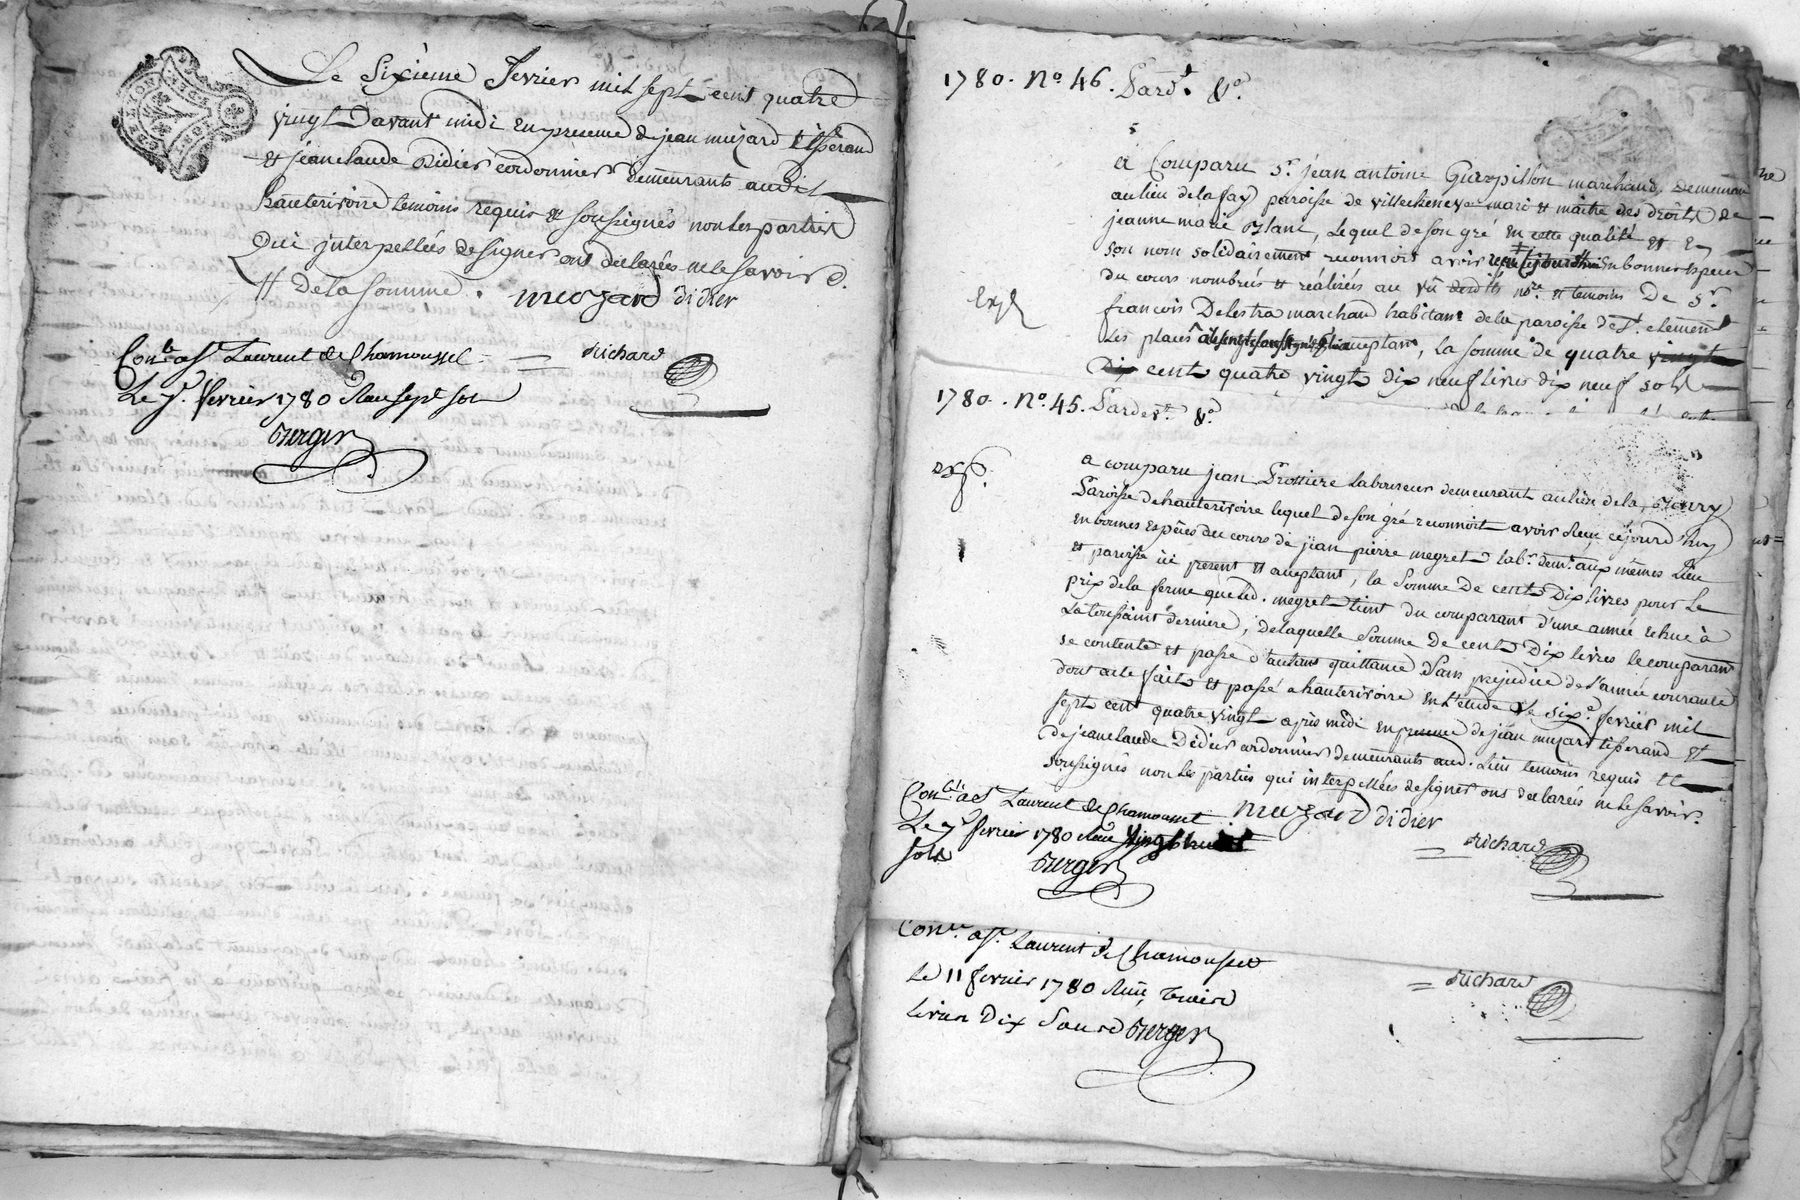 Le Sixième fevrier mil sept cent quatre
vingt Davant midi en presence de jean muzard tisserand
et jean claude Didier cordonnier demeurants audit
hauterivoire temoins requis et soussignés non les parties
Qui interpellées designer ont declarées ne le savoir
// de la somme. muzard didier
Con.lé a S.t Laurent de Chamousset Richard
Le 7.e fevrier 1780 Reçu sept sols
Berger
1780. N.o 46. Pard.t &.a
à Comparu S.r jean antoine Guerpillon marchand, demeurant
au lieu de la fay paroisse de villechenev mari et maitre des droits de
jeanne marie Blanc, Lequel de son gré en cette qualité et en
son nom solidairement reconnoit avoir en bonnes especes
du cours nombrés et réalisés au vû no.re et temoins De S.r
françois Delestra marchand habitant de la paroisse de S.t clement
Les places acceptant, la somme de quatre vingt
Dix cent quatre vingt dix neuf livres dix neuf sols
1780. N.o 45. Pardev.t &.a
exp.
a comparu jean Laboureur demeurant au lieu de la
Paroisse de hauterivoire lequel de son gré reconnoit avoir Reçu cejourd'huy
en bonnes Espèces du cours de jean pierre megret lab.r dem.t aux mêmes Lieu
et paroisse ici present et acceptant, la Somme De cent Dix livres pour le
prix de la ferme que led. megret tient du comparant d'une année echue à
La toussaint derniere, de laquelle Somme De cent Dix livres le comparant
se contente et passe d'autant quittance Sans prejudice de l'année courante
dont acte fait et passé a hauterivoire en l'etude Le six.e fevrier mil
sept cent quatre vingt après midi en presence de jean muzard tisserand et
de jean claude Didier cordonnier demeurants aud. Lieu temoins requis et
soussignés non les parties qui interpellées designer ont declarées ne le savoir.
Con.lé a S.t Laurent de Chamousset muzard didier
Le 7.e fevrier 1780 Reçu Richard
sols Berger
Con.lé a S.t Laurent de Chamousset
Le 11 fevrier 1780 Reçu Treize Richard
Livres Dix Sous Berger